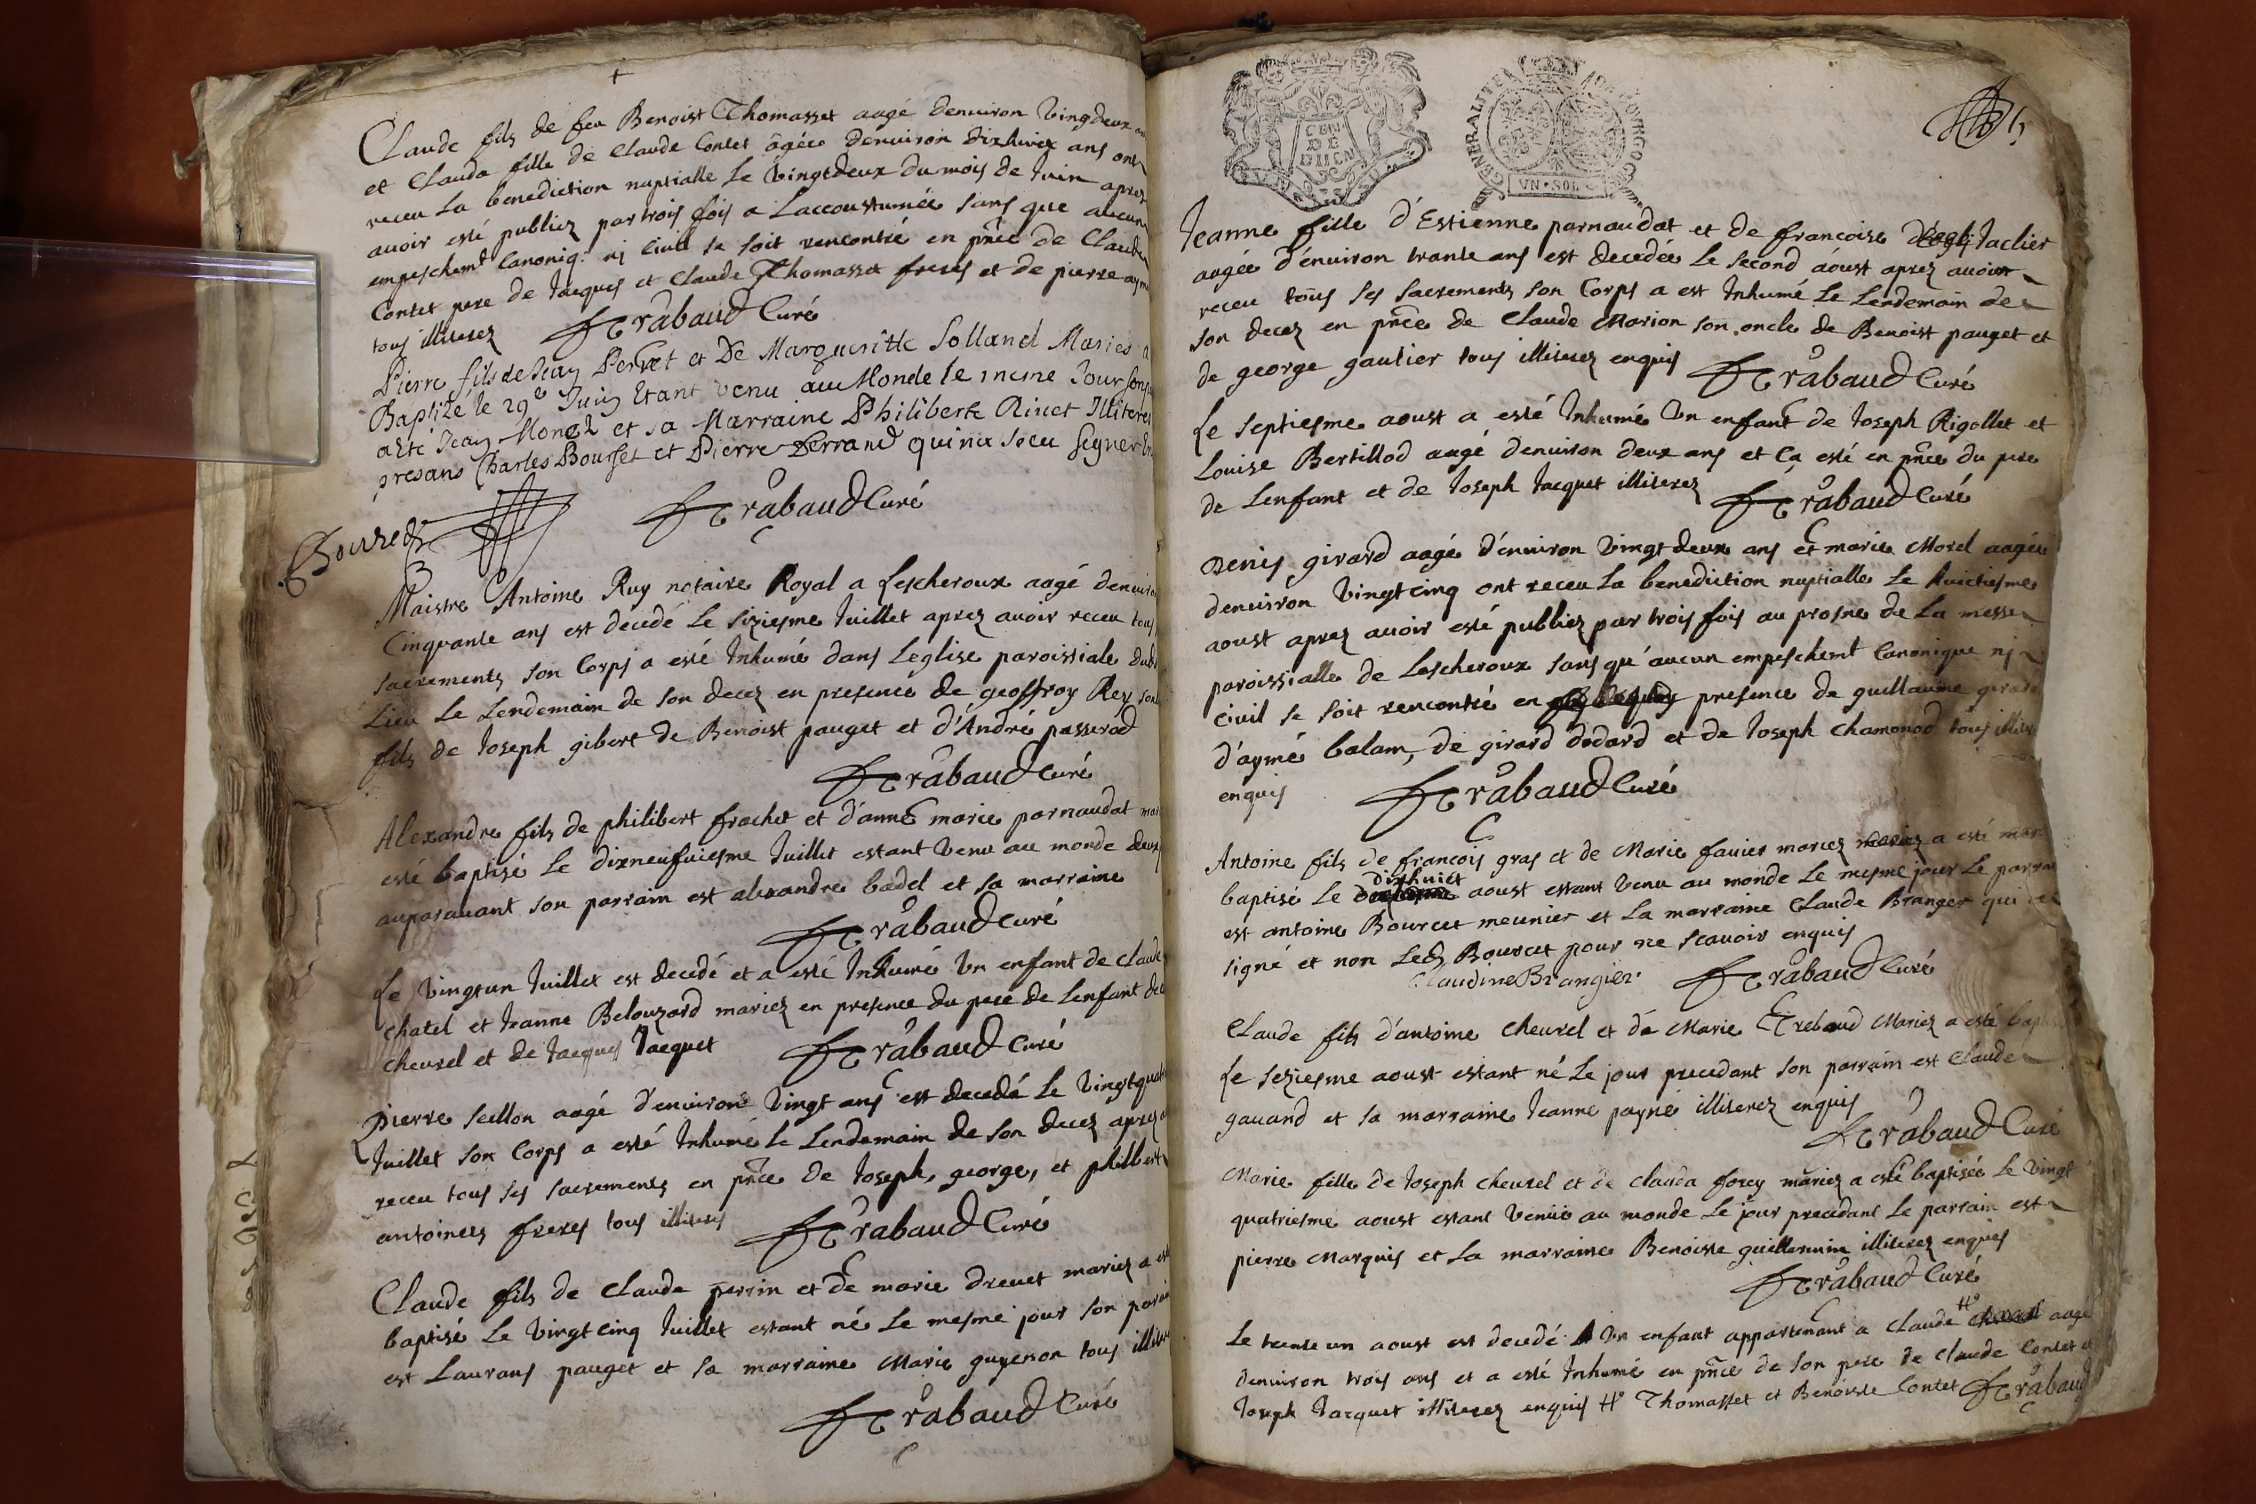 Claude fils de feu Benoist Thomasset aagé denuiron Vingdeux
et Clauda fille de Claude Contet âgée denuiron dixhuict ans ont
receu La benediction nuptialle Le Vingtdeux du mois de Juin aprez
auoir esté publiez par trois fois a Laccoustumée sans que aucun
empeschemt Canoniq. nj Ciuil se soit rencontré en pnce de Claude
Contet pere de Jacques et Claude Thomasset freres et de pierre
tous illiterez Trabaud Curé
Pierre fils de Jean Perret et De Margueritte Solland Maries
Baptizé le 29e Juin Etant venu au Monde le meme Jour
a Ete Jean et sa Marraine Philiberte Riuet Illiteres
presans Charles Bourset et Pierre Ferrand qui na sceu Signer
Bourset
Trabaud Curé
Maistre Antoine Ruy notaire Royal a Lescheroux aagé denuiron
Cinquante ans est decedé Le sixiesme Juillet aprez auoir receu tous
sacrements son Corps a esté Inhumé dans Leglise paroissiale dud
Lieu Le Lendemain de son decez en presence de geoffroy Rey son
fils de Joseph gibert de Benoist pauget et d'André passerad
Trabaud Curé
Alexandre fils de philibert frachet et d'anne marie parnaudat
esté baptisé Le dixneufuiesme Juillet estant Venu au monde deux
auparauant son parrain est alexandre badel et sa marraine
Trabaud Curé
Le Vingtun Juillet est decedé et a esté Inhumé Vn enfant de claude
chatel et Jeanne Belouzard mariez en presence du pere de Lenfant
cheurel et de Jacques Jacquet Trabaud Curé
pierre seillon aagé d'enuiron Vingt ans est decedé Le Vingtquat
Juillet son Corps a esté Inhumé Le Lendemain de son decez aprez
receu tous ses sacrements en pnce de Joseph, george, et philibert
antoinees freres tous illiteres Trabaud Curé
Claude fils de Claude perrin et de marie dreuet mariez a
baptisé Le Vingtcinq Juillet estant né Le mesme jour son parain
est Laurans pauget et sa marraine Marie guyenon tous illiter
Trabaud Curé
GENERALITE DE BOURGOGNE
VN·SOL
Jeanne fille d'Estienne parnaudat et de francoise Jaclier
aagée d'enuiron trante ans est decedée Le second aoust aprez auoir
receu tous ses sacrements son Corps a est Inhumé Le Lendemain de
son decez en pnce de Claude Marion son oncle de Benoist pauget et
de george gautier tous illiterez enquis Trabaud Curé
Le septiesme aoust a esté Inhumé Vn enfant de Joseph Rigollet et
Louise Bertillod aagé denuiron deux ans et Ca esté en pnce du pere
de Lenfant et de Joseph Jacquet illiterez Trabaud Curé
Denis girard aagé d'enuiron Vingtdeux ans et marie Morel aagée
denuiron Vingtcinq ont receu La benediction nuptialle Le huictiesme
aoust aprez auoir esté publiez par trois fois au prosne de La messe
paroissialle de Lescheroux sans qu'aucun empeschemt Canonique nj
Ciuil se soit rencontré en presence de guillaume girard
d'aymé balam, de girard dodard et de Joseph Chamonod tous illiter
enquis Trabaud Curé
Antoine fils de francois gras et de Marie fauier mariez a esté
baptisé Le dixhuict aoust estant Venu au monde Le mesme jour Le parrain
est antoine Bourcet meunier et La marraine Claude Branger qui
signé et non Led Bourcet pour ne scauoir enquis
Claudine Brangier Trabaud Curé
Claude fils d'antoine cheurel et de Marie Trebaud Mariez a esté bapt
Le seziesme aoust estant né Le jour precedant son parrain est Claude
gauand et sa marraine Jeanne payné illiterez enquis
Trabaud Curé
Marie fille de Joseph cheurel et de clauda forey mariez a esté baptisée Le Vingt
quatriesme aoust estant Venüe au monde Le jour precedant Le parrain est
pierre Marquis et La marraine Benoiste guillermin illiterez enquis
Trabaud Curé
Le trente un aoust est decedé Vn enfant appartenant a Claude aagé
denuiron trois ans et a esté Inhumé en pnce de son pere de claude Contet et
Joseph Jacquet illiterez enquis Thomasset et Benoiste Contet Trabaud